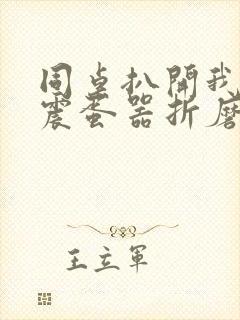 同桌扒開我
震蛋器折磨
王立軍